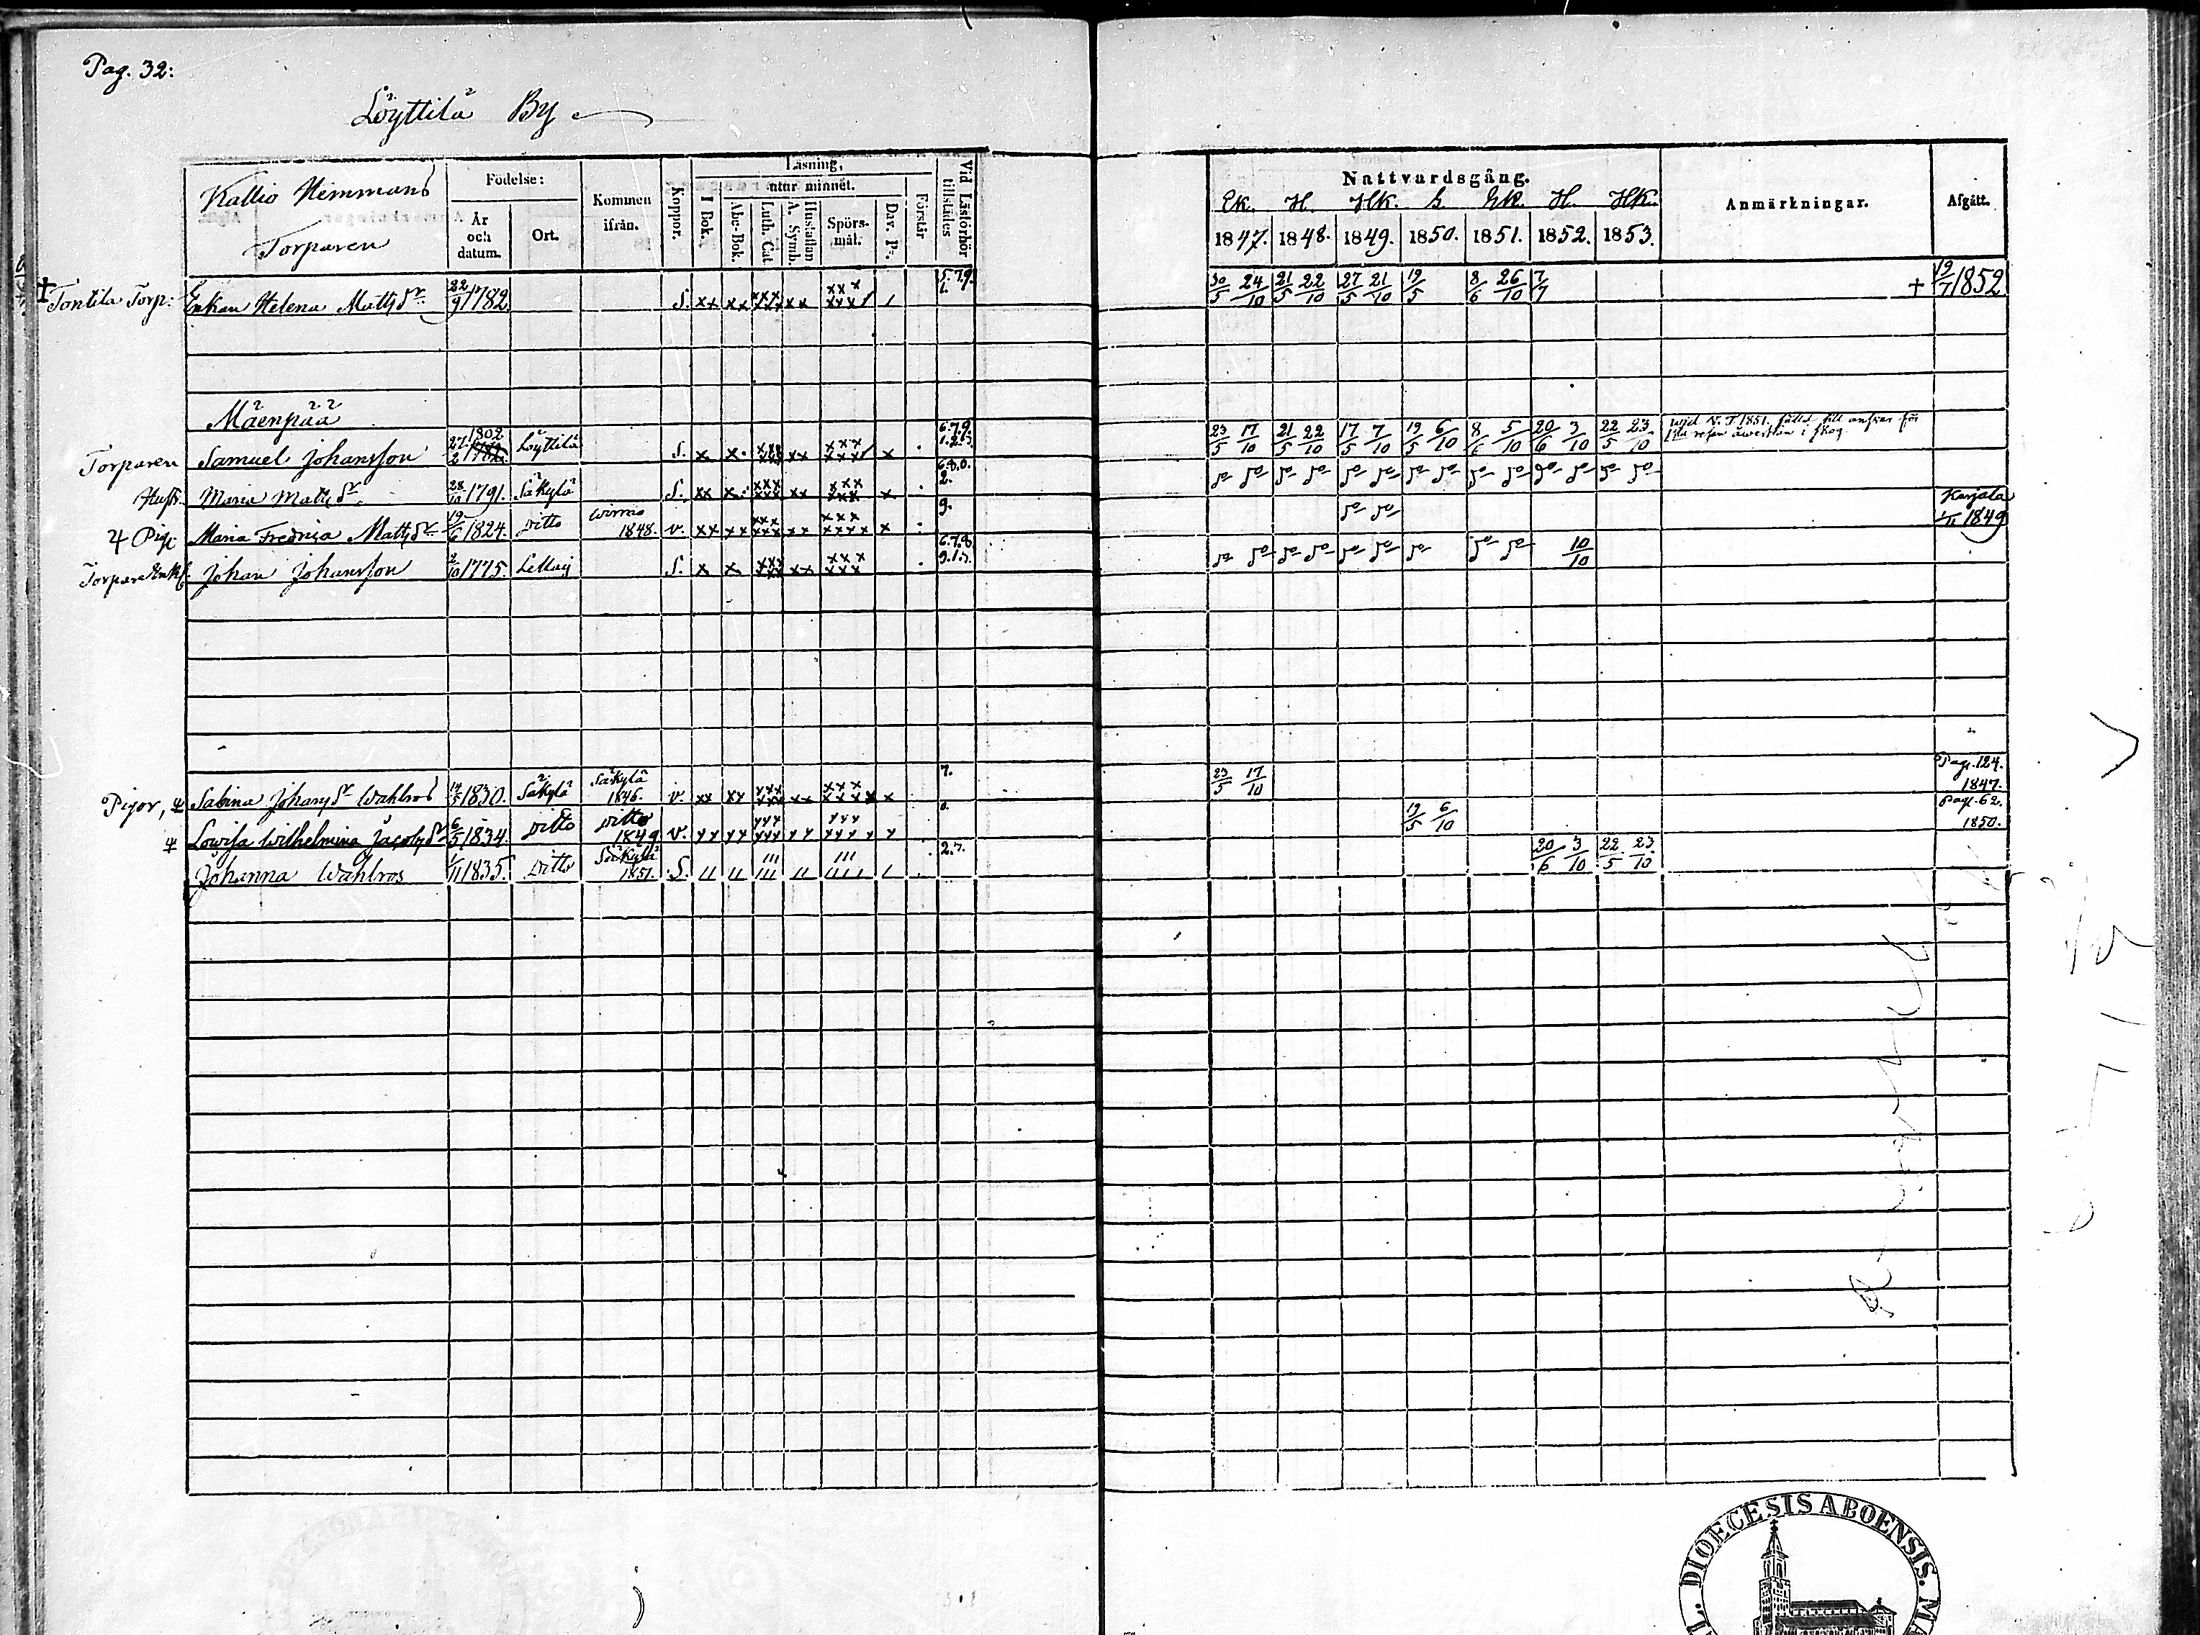 Pag. 32:
Löyttilä By
Kallio Hemmans
Torparen
Födelse:
År och datum.
Ort.
Kommen ifrån.
Koppor.
Läsning,
utur minnet.
I Bok.
Abc-Bok.
Luth. Cat.
Hustaflan A. Symb.
Spörs-mål.
Dav. Ps.
Förstår
Vid Läsförhör tillstädes
Nattvardsgång.
Ek. H. Hk. G Ek. H. HK.
1847. 1848. 1849. 1850. 1851. 1852. 1853.
Anmärkningar.
Afgått.
† Tontila Torp: Enkan Helena Matts dr 22/9 1782. S. xx xx xxx xxx xx xxx xxx/ / 5.7.9. 1. 30/5 24/10 21/5 22/10 27/5 21/10 19/5 8/6 26/10 7/7 + 19/7 1852
Mäenpää
Torparen Samuel Johansson 27/2 1802 Löyttilä S. x x. xxx xxx xx xxx xxx/ x 6.7.9. 1.2.3. 23/5 17/10 21/5 22/10 17/5 7/10 19/5 6/10 8/6 5/10 20/6 3/10 22/5 23/10
1851
i skog
Hustr. Maria Matts dr 28/10 1791. Säkylä S. xx x. xxx xxx xx xxx xxx x 6.8.0. 2.
Pig: Maria Fredrica Matts dr 19/6 1824. ditto Wirmo 1848. v. xx xx xxx xxxx xx xxx xxxx x 9. Karjala 1849
Torpare Enkl. Johan Johansson 2/10 1775. Lettaij S. x x. xxx xxx xx xxx xxx 6.7.8. 9.1.3. 10/10
Pigor, Sabina Johans dr Wahlros 14/5 1830. Säkylä Säkylä 1846. v. xx xx xxx xxxx xx xxx xxxx x 7. 23/5 17/10 Pag. 124. 1847.
Lowisa Wilhelmina Jacobs dr 6/5 1834. ditto ditto 1849 v. xx xx xxx xxx xx xxx xxxx x 0. 19/5 6/10 Pag. 62. 1850.
Johanna Wahlros 1/11 1835. ditto Säkylä 1851. S. 2.3. 20/6 3/10 22/5 23/10
DIOECESIS ABOENSIS.